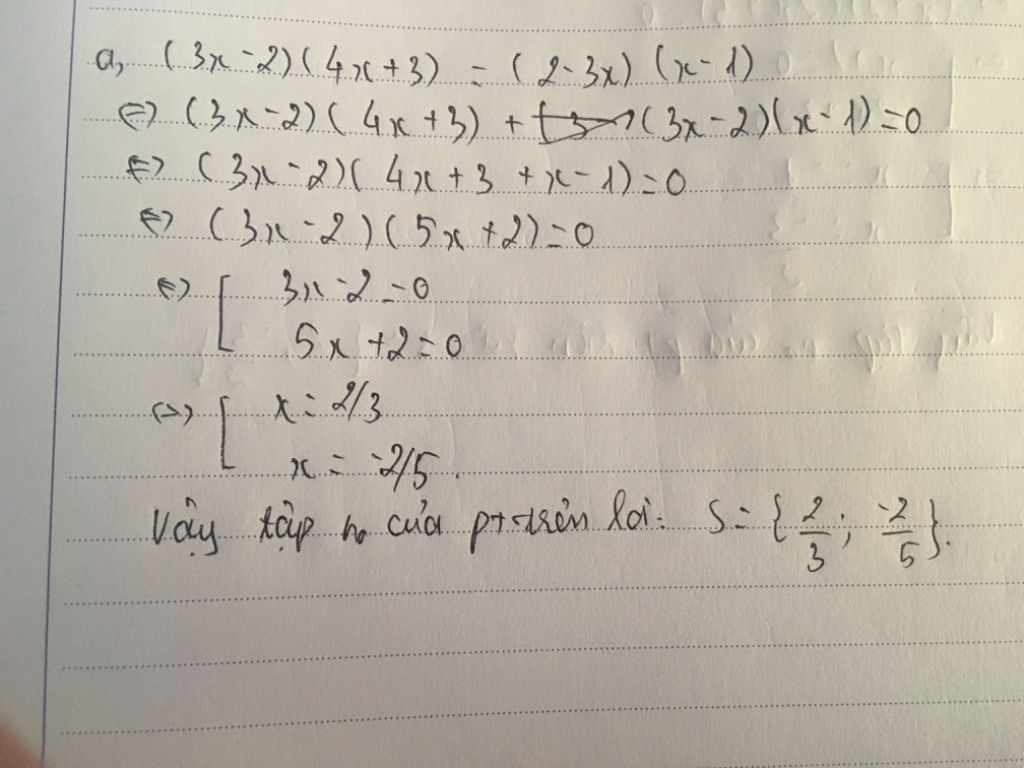 a, (3x-2)(4x+3) = (2-3x)(x-1)
⇔ (3x-2)(4x+3) + (3x-2)(x-1)=0
⇔ (3x-2)(4x+3+x-1)=0
⇔ (3x-2)(5x+2)=0
⇔ [ 3x-2=0
5x+2=0
⇔ [ x = 2/3
x = -2/5.
Vậy tập n₀ của pt trên là: S = {2/3; -2/5}.